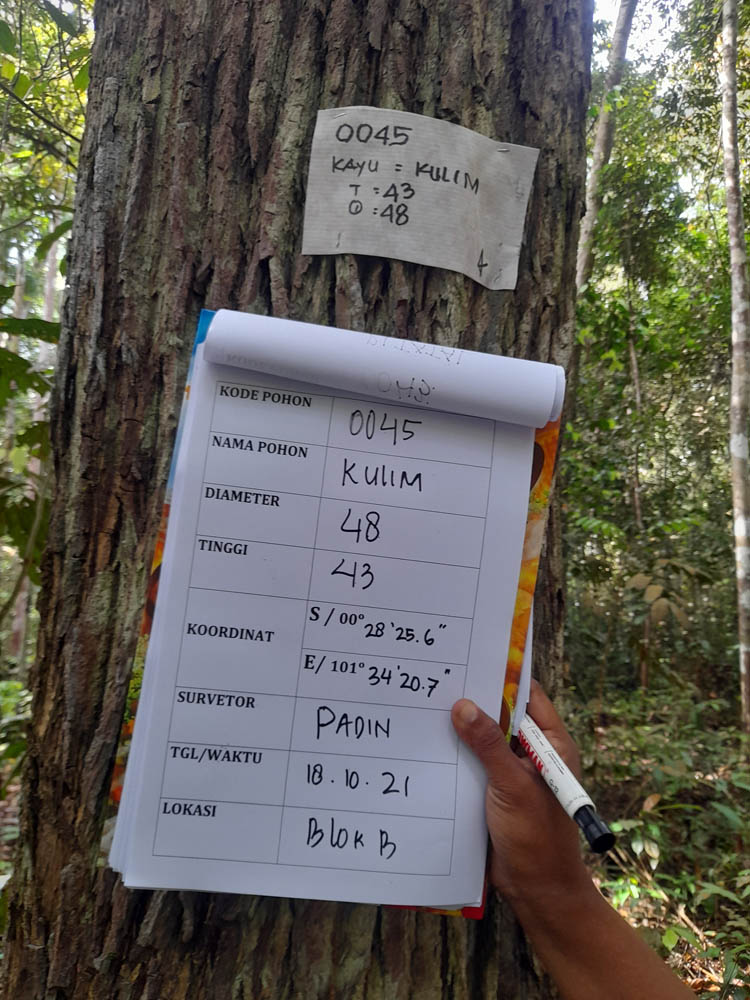 0045
KAYU = KULIM
T = 43
Ф : 48
4
KODE POHON 0045
NAMA POHON KULIM
DIAMETER 48
TINGGI 43
KOORDINAT S / 00° 28'25.6"
E/ 101° 34'20.7"
SURVETOR PADIN
TGL/WAKTU 18.10.21
LOKASI Blok B